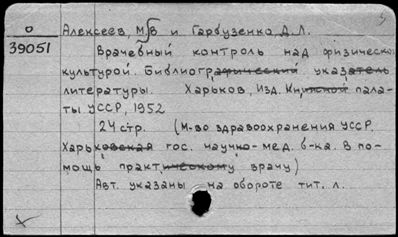 О
39051
Алексеев, М.В и Гарбузенко Д.Л.
Врачебный контроль над физической
культурой. Библиографический указатель
литературы. Харьков, Изд. Книжной пала-
ты УССР, 1952
24 стр. (М-во здравоохранения УССР.
Харьковская гос. научно-мед. б-ка. В по-
мощь практическому врачу)
Авт. указаны на обороте тит. л.